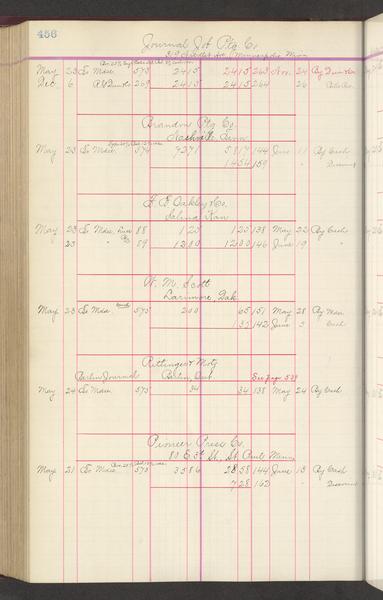 456
Journal Job Ptg Co
Minneapolis Minn
May 23 To Mdse 573 2415 2415 263 Nov. 24 By
Dec. 6 269 2415 2415 264 26
Brandon Ptg Co
Nashville Tenn
May 23 To Mdse 574 7271 5817 144 June 11 By Cash
1454 159 " Discount
F. E. Oakley & Co.
Salina Kan
May 23 To Mdse 88 125 125 138 May 22 By Cash
23 " 89 1200 1200 146 June 19 "
W. M. Scott
Larimore, Dak
May 23 To Mdse 575 200 65 151 May 28 By Mdse
135 142 June 3 Cash
Rittinger & Motz
Berlin Journal Berlin, Ont See page 539
May 24 To Mdse 575 34 34 138 May 24 By Cash
Pioneer Press Co.
St., St. Paul Minn
May 21 To Mdse 573 3586 2858 144 June 13 By Cash
728 162 " Discount